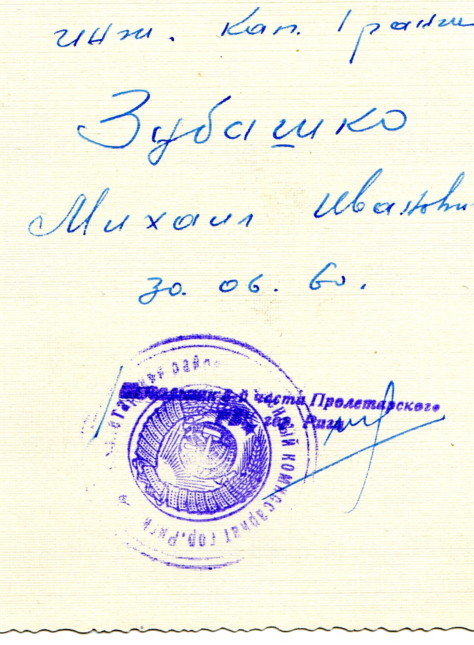 инж. Кап. I ранги
Зубашко
Михаил Иванови
30. 06. 60.
Начальник й части Пролетарского
РВК гор. Риги
комиссариат гор. Риги